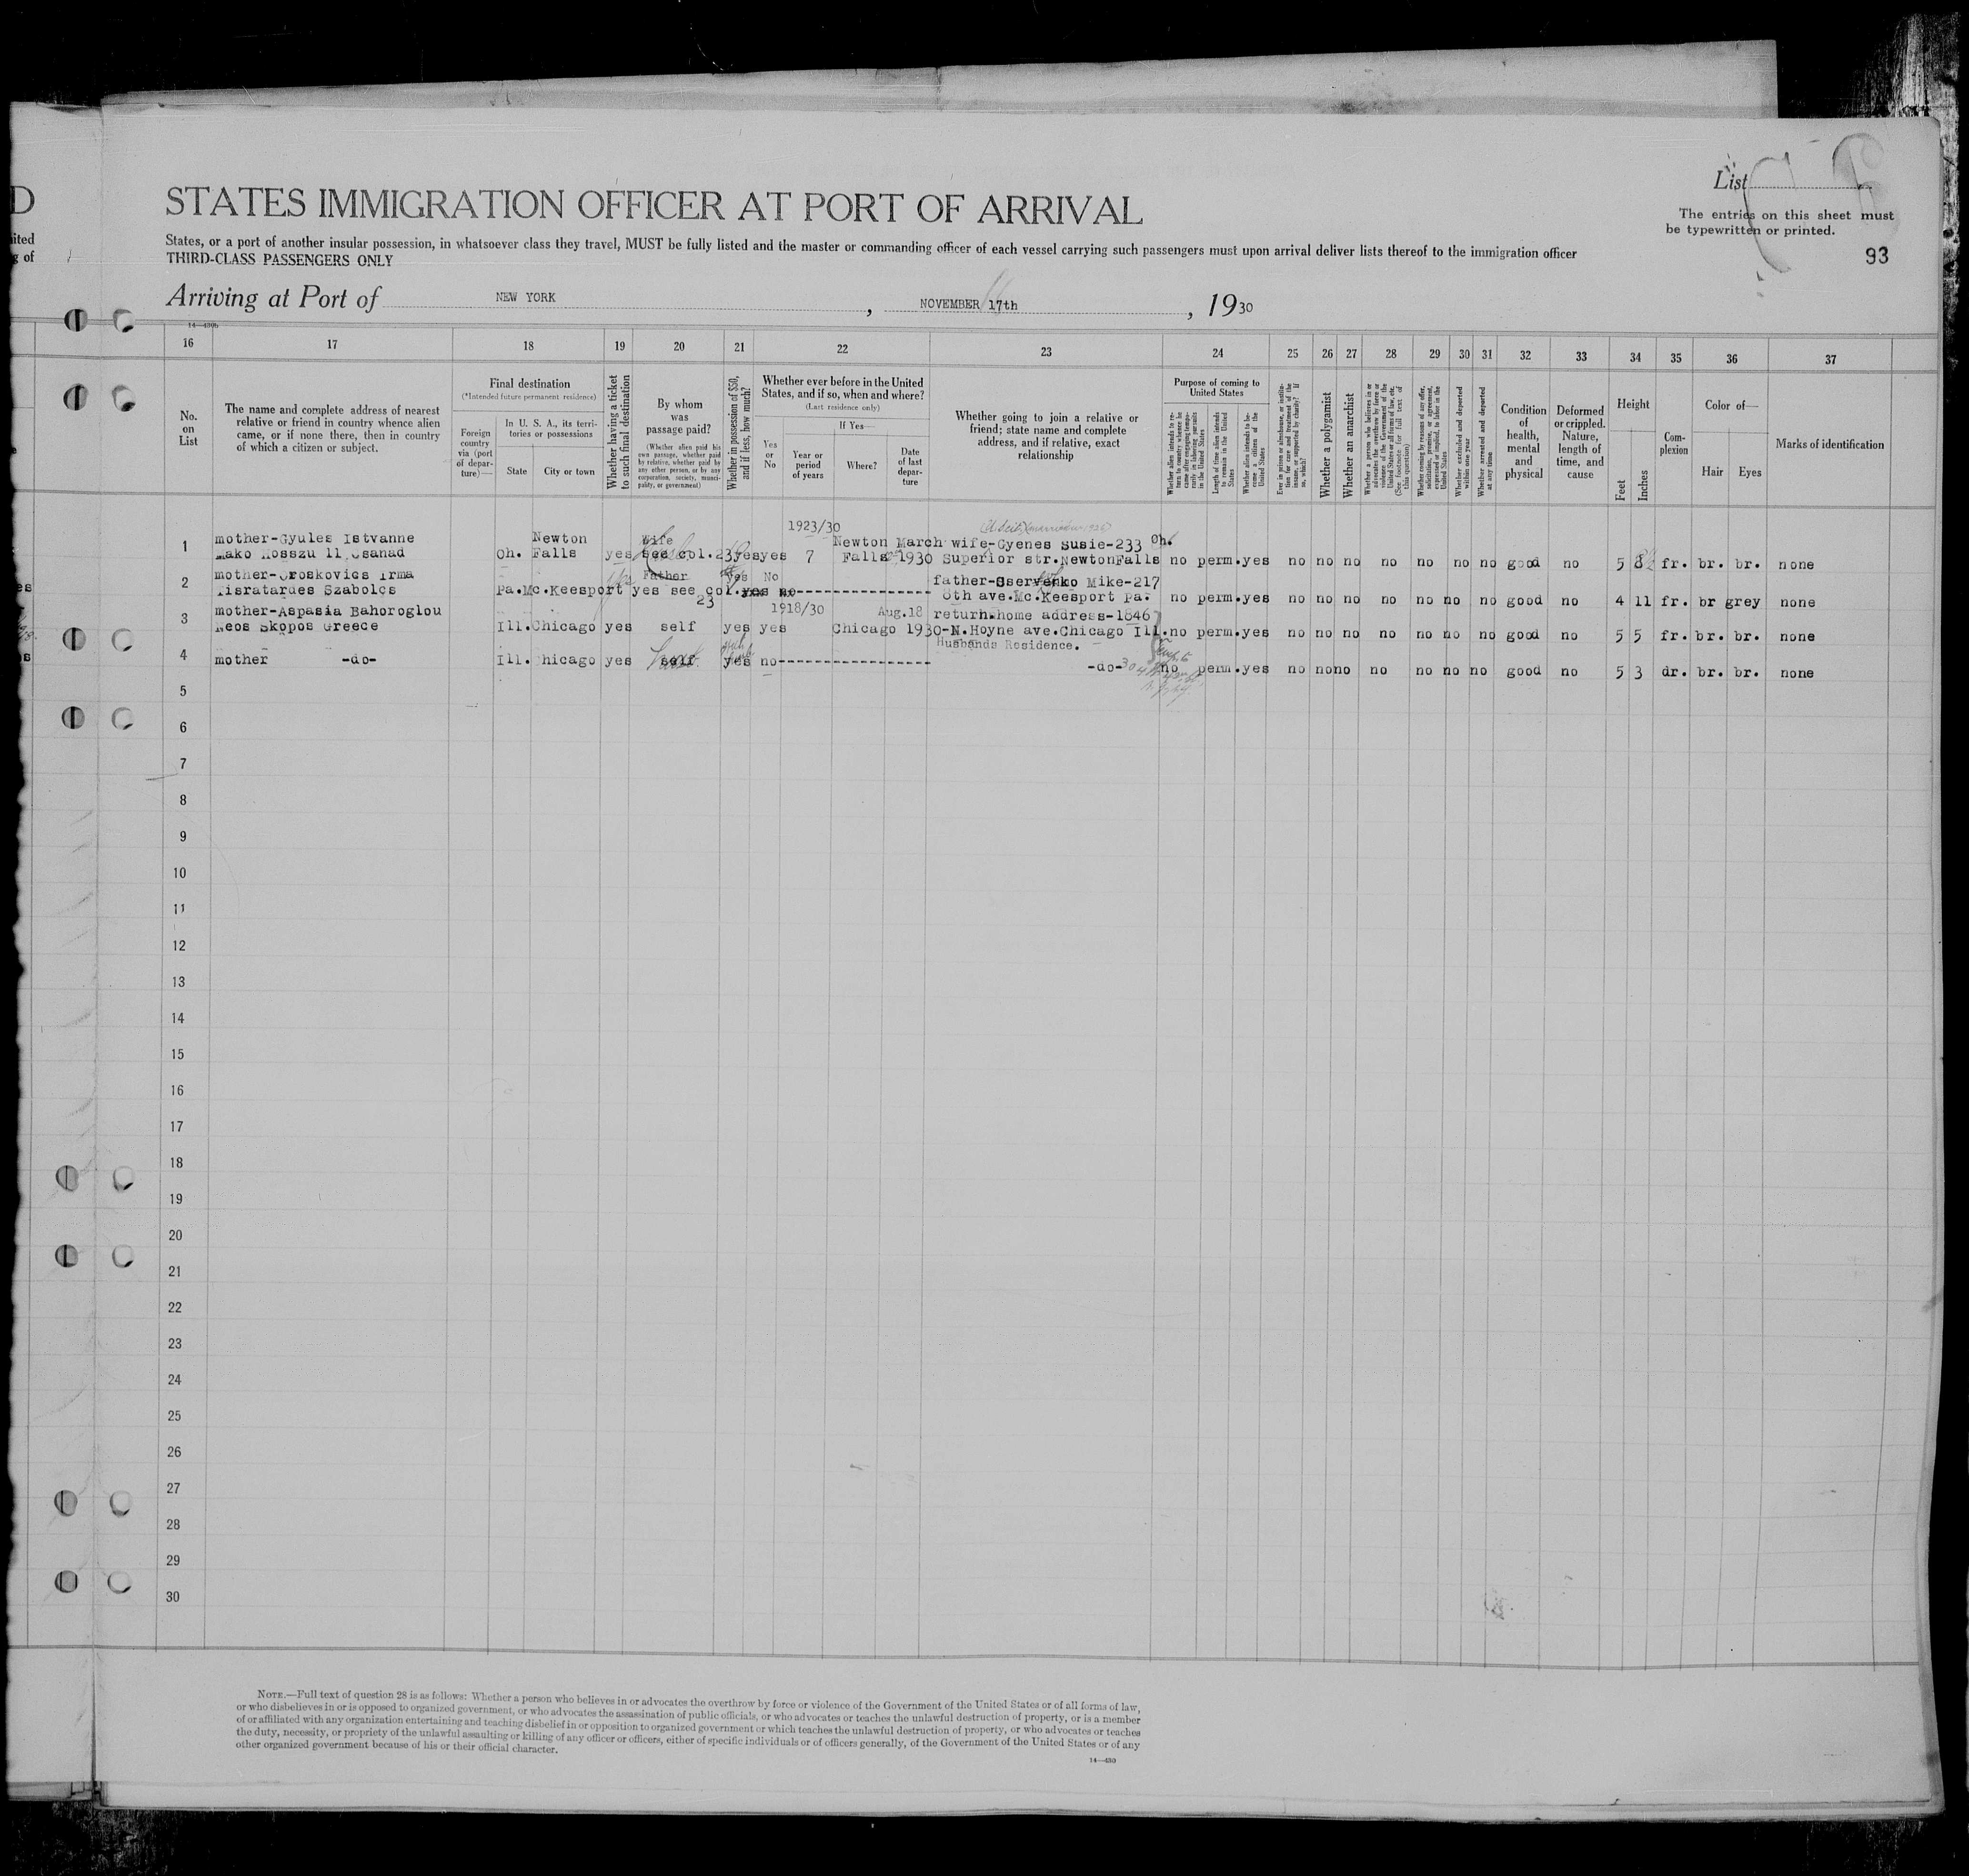 D
ited
g of
List
STATES IMMIGRATION OFFICER AT PORT OF ARRIVAL
The entries on this sheet must
be typewritten or printed.
93
States, or a port of another insular possession, in whatsoever class they travel, MUST be fully listed and the master or commanding officer of each vessel carrying such passengers must upon arrival deliver lists thereof to the immigration officer
THIRD-CLASS PASSENGERS ONLY
Arriving at Port of NEW YORK , NOVEMBER 17th , 1930
14—430b
16 17 18 19 20 21 22 23 24 25 26 27 28 29 30 31 32 33 34 35 36 37
No.
on
List
The name and complete address of nearest
relative or friend in country whence alien
came, or if none there, then in country
of which a citizen or subject.
Final destination
(*Intended future permanent residence)
Foreign
country
via (port
of depar-
ture)—
In U. S. A., its terri-
tories or possessions
State
City or town
Whether having a ticket
to such final destination
By whom
was
passage paid?
(Whether alien paid his
own passage, whether paid
by relative, whether paid by
any other person, or by any
corporation, society, munici-
pality, or government)
Whether in possession of $50,
and if less, how much?
Whether ever before in the United
States, and if so, when and where?
(Last residence only)
Yes
or
No
If Yes—
Year or
period
of years
Where?
Date
of last
depar-
ture
Whether going to join a relative or
friend; state name and complete
address, and if relative, exact
relationship
Purpose of coming to
United States
Whether alien intends to re-
turn to country whence he
came after engaging tempo-
rarily in laboring pursuits
in the United States
Length of time alien intends
to remain in the United
States
Whether alien intends to be-
come a citizen of the
United States
Ever in prison or almshouse, or institu-
tion for care and treatment of the
insane, or supported by charity? If
so, which?
Whether a polygamist
Whether an anarchist
Whether a person who believes in or
advocates the overthrow by force or
violence of the Government of the
United States or all forms of law, etc.
(See footnote for full text of
this question)
Whether coming by reasons of any offer,
solicitation, promise, or agreement,
expressed or implied, to labor in the
United States
Whether excluded and deported
within one year
Whether arrested and deported
at any time
Condition
of
health,
mental
and
physical
Deformed
or crippled.
Nature,
length of
time, and
cause
Height
Feet
Inches
Com-
plexion
Color of—
Hair
Eyes
Marks of identification
1923/30
1 mother-Gyules Istvanne Newton Wife Newton March wife-Gyenes Susie-233 Oh.
Mako Hosszu 11 Csanad Oh. Falls yes see col.23 yes yes 7 Falls 1930 Superior str.NewtonFalls no perm. yes no no no no no no no good no 5 8 fr. br. br. none
2 mother-Oroskovics Irma Father yes No father- Mike-217
Tisratardes Szabolcs Pa. Mc.Keesport yes see col. 23 8th ave.Mc.Keesport Pa. no perm. yes no no no no no no no good no 4 11 fr. br grey none
3 mother-Aspasia Bahoroglou 1918/30 Aug.18 return home address-1846
Neos Skopos Greece Ill. Chicago yes self yes yes Chicago 1930-N.Hoyne ave.Chicago Ill. no perm. yes no no no no no no no good no 5 5 fr. br. br. none
Husbands Residence.
4 mother -do- Ill. Chicago yes self yes no -do- no perm. yes no no no no no no no good no 5 3 dr. br. br. none
5
6
7
8
9
10
11
12
13
14
15
16
17
18
19
20
21
22
23
24
25
26
27
28
29
30
NOTE.—Full text of question 28 is as follows: Whether a person who believes in or advocates the overthrow by force or violence of the Government of the United States or of all forms of law,
or who disbelieves in or is opposed to organized government, or who advocates the assassination of public officials, or who advocates or teaches the unlawful destruction of property, or is a member
of or affiliated with any organization entertaining and teaching disbelief in or opposition to organized government or which teaches the unlawful destruction of property, or who advocates or teaches
the duty, necessity, or propriety of the unlawful assaulting or killing of any officer or officers, either of specific individuals or of officers generally, of the Government of the United States or of any
other organized government because of his or their official character.
14—430